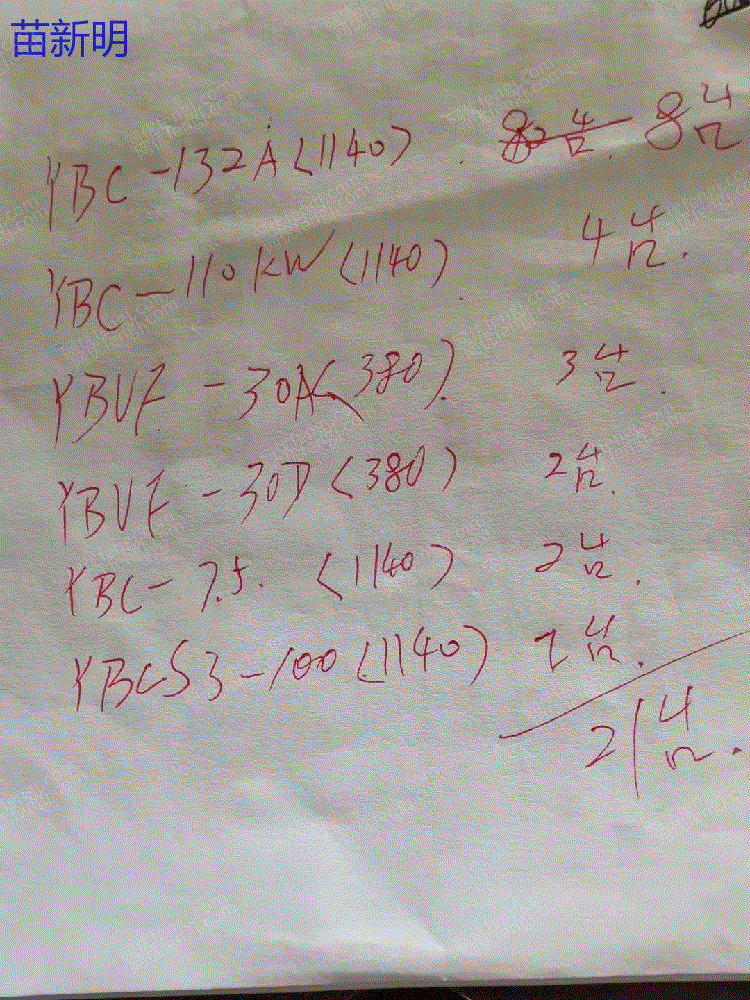 苗新明
YBC-132A(1140). 8台
YBC-110KW(1140). 4台.
YBVF-30A(380). 3台.
YBVF-30D(380) 2台.
YBC-7.5.(1140) 2台.
YBCS3-100(1140) 2台.
21台.